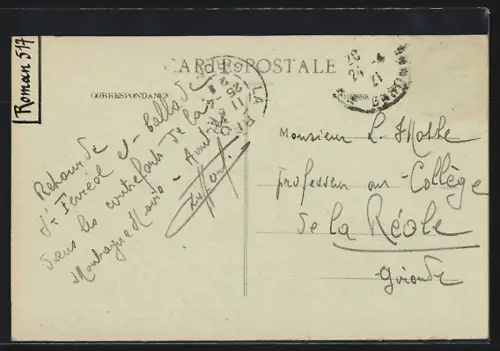 Roman 517
CARTE POSTALE
CORRESPONDANCE
LA RÉOLE
Retour de
St Ferréol et ballade
dans les contreforts de la
Montagne Noire - Amitiés
Monsieur L. Mothe
professeur au Collège
de la Réole
Gironde